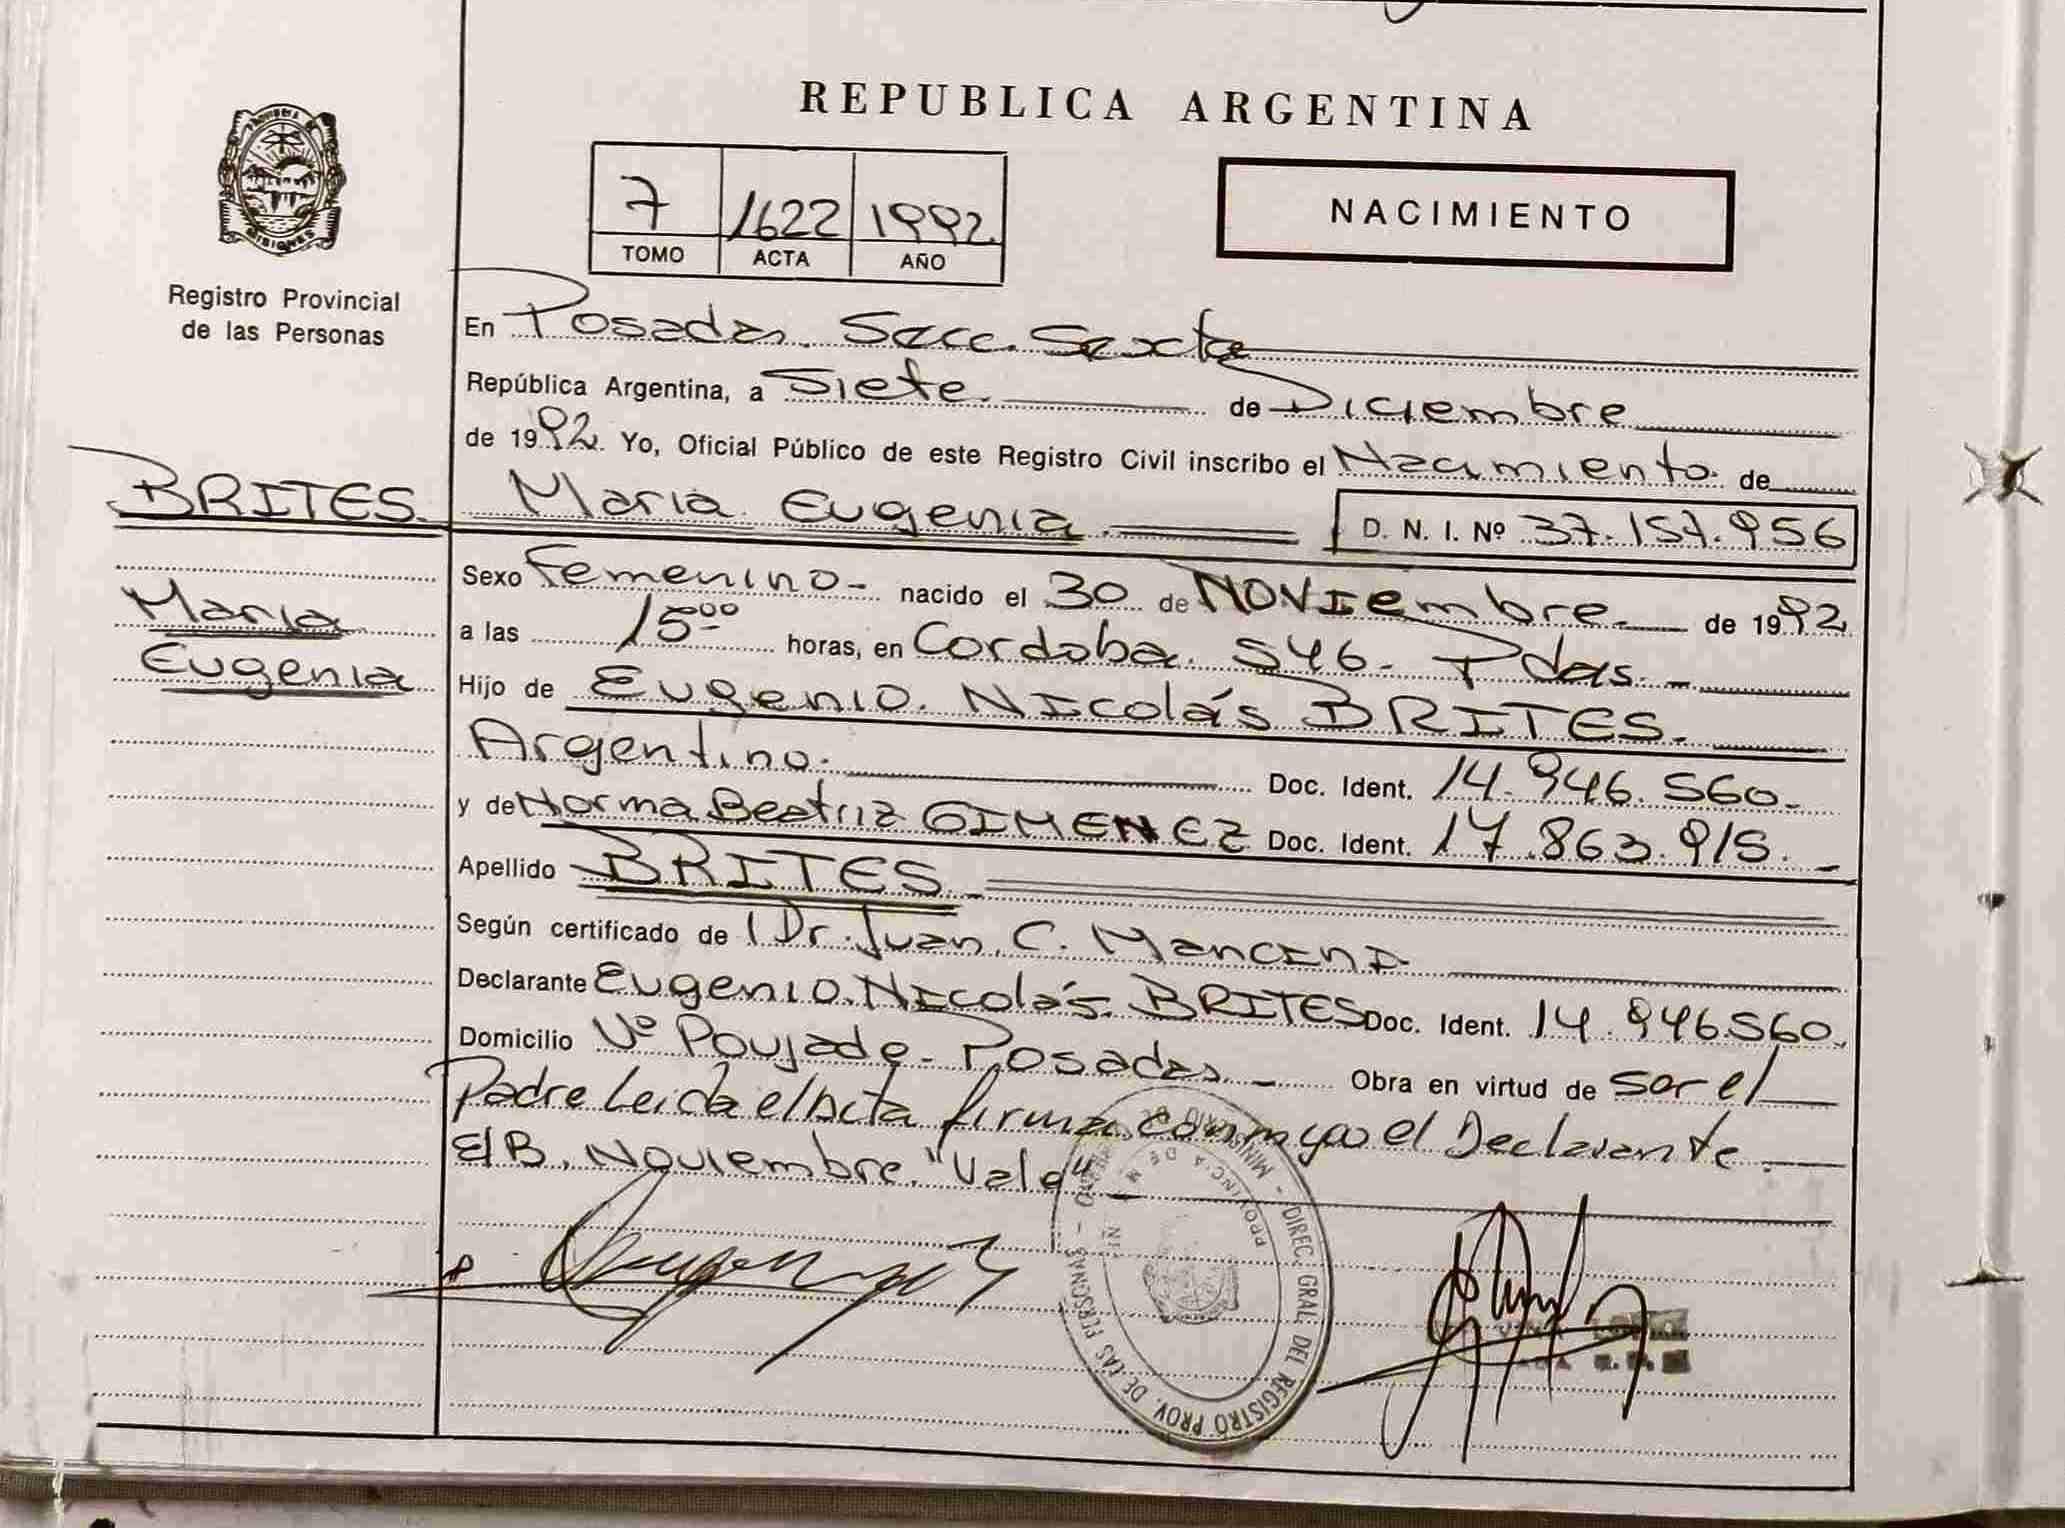 REPUBLICA ARGENTINA
7 1622 1992.
TOMO ACTA AÑO
NACIMIENTO
PROVINCIA DE
MISIONES
Registro Provincial
de las Personas
En Posadas. Secc. Sexta
República Argentina, a Siete. de Diciembre
de 1992. Yo, Oficial Público de este Registro Civil inscribo el Nacimiento de
BRITES. Maria Eugenia. D. N. I. Nº 37.157.956
Maria
Eugenia
Sexo Femenino- nacido el 30 de NOVIembre. de 1992.
a las 15⁰⁰ horas, en Cordoba. 546- Pdas. -
Hijo de Eugenio. Nicolás BRITES.
Argentino. Doc. Ident. 14.946.560.-
y de Norma Beatriz GIMENEZ Doc. Ident. 17.863.915. -
Apellido BRITES.
Según certificado de Dr. Juan. C. Mancini
Declarante Eugenio. Nicolás. BRITES Doc. Ident. 14.946.560.
Domicilio Vº Poujade- Posadas. - Obra en virtud de ser el
Padre Leida el Acta firma conmigo el Declarante.
E/B. Noviembre. "Vale"
MINISTERIO DE - DIREC. GRAL. DEL REGISTRO PROV. DE LAS PERSONAS -
PROVINCIA DE